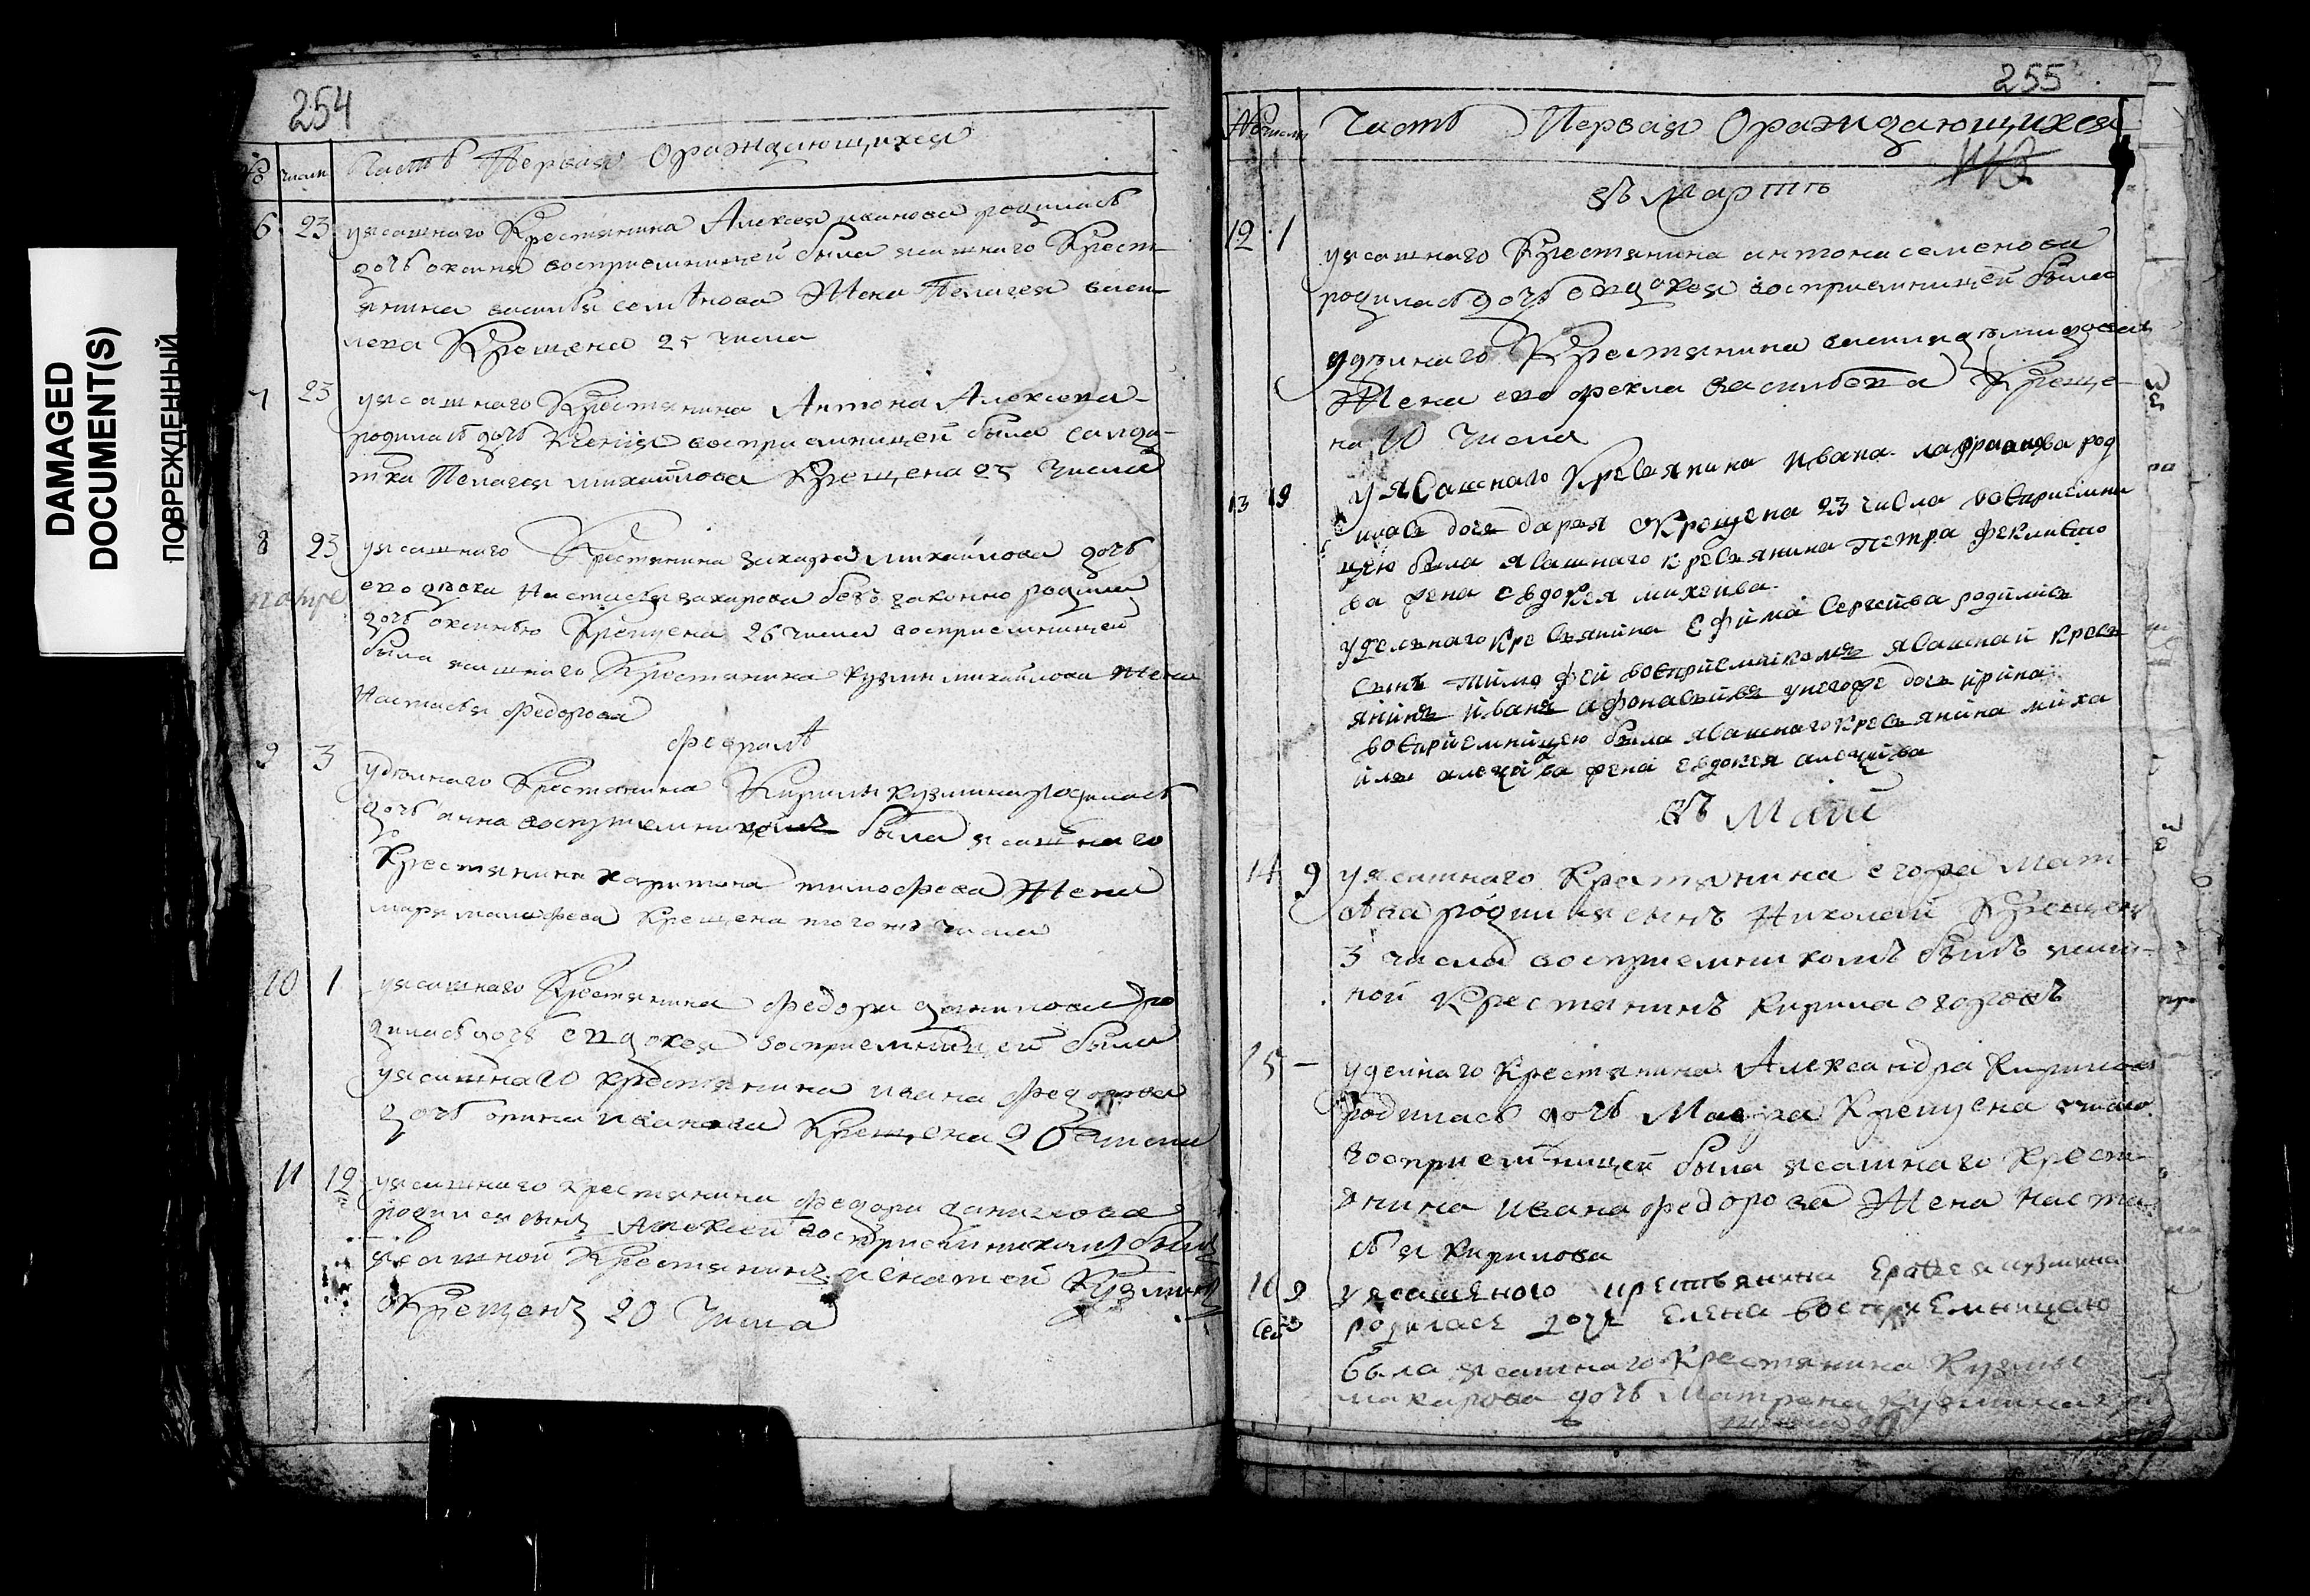 DAMAGED
DOCUMENT(S)
ПОВРЕЖДЕННЫЙ
254
№ числи Часть Первая Ораждающихся
6 23 уясашнаго Крестянина Алексея иванова родилась
дочь оксинья восприемницей была ясашнаго Крест-
янина василья семѣнова Жена Пелагея васи-
лева Крещена 25 числа
7 23 уясашнаго Крестянина Антона Алексева
родилась дочь Ксенiя восприемницей была салда-
тка Пелагея михаилова Крещена 25 числа
8 23 уясашнаго Крестянина захара михаилова дочь
его девка Настасья захарова безъ законно родила
дочь оксинью Крещена 26 числа восприемницей
была ясашнаго Крестянина кузмы михаилова жена
Настасья федорова
февраль
9 3 удѣлнаго Крестянина Кирилы кузмина родилась
дочь анна была ясашнаго
Крестянина харитона тимофеева Жена
Крещена того жъ числа
10 1 уясашнаго Крестянина федора данилова ро
дилась дочь евдокея восприемницей была
уясашнаго крестянина ивана федорова
дочь ирина иванова Крещена 20 числа
11 12 уясашнаго крестянина федора данилова
родился сынъ Алексей восприемникомъ былъ
ясашной Крестянинъ игнатей Кузминъ
Крещенъ 20 числа
255
№ числы Часть Первая Ораждающихся
въ Мартъ
12 1 уясашнаго Крестянина антона семенова
родилась дочь евдокея восприемницей была
удѣлнаго Крестянина
Жена его фекла васильева Креще-
на 10 числа
13 19 уясашнаго Кресянина ивана род
илась дочь дарья Крещена 23 числа восприемни
цею была ясашнаго кресьянина петра феклисто
ва жена евдокея михеива
удельнаго кресьянина Ефима Сергеива родилися
сынъ тимофей восприемникомъ ясашнай кресь
янинъ иванъ афонасьивъ унегоже дочь ирина
восприемницею была ясашнаго кресьянина миха
илы алексива жена евдокея алексива
въ Маие
14 9 уясашнаго Крестянина егора Мат-
вѣва родился сынъ Николай Крещенъ
3 числа восприемникомъ былъ ясаш-
ной Крестянинъ Кирила егоровъ
15 — уделнаго крестянина Александра Кирилова
родилась дочь Мавра Крещена
восприемницей была ясашнаго Крест-
янина ивана федорова Жена Наста
сья кирилова
16 9 уясашеного крестьянина
родилась дочь Елена восприемницаю
была ясашнаго Крестянина Кузмы
макарова дочь Матрена кузмина